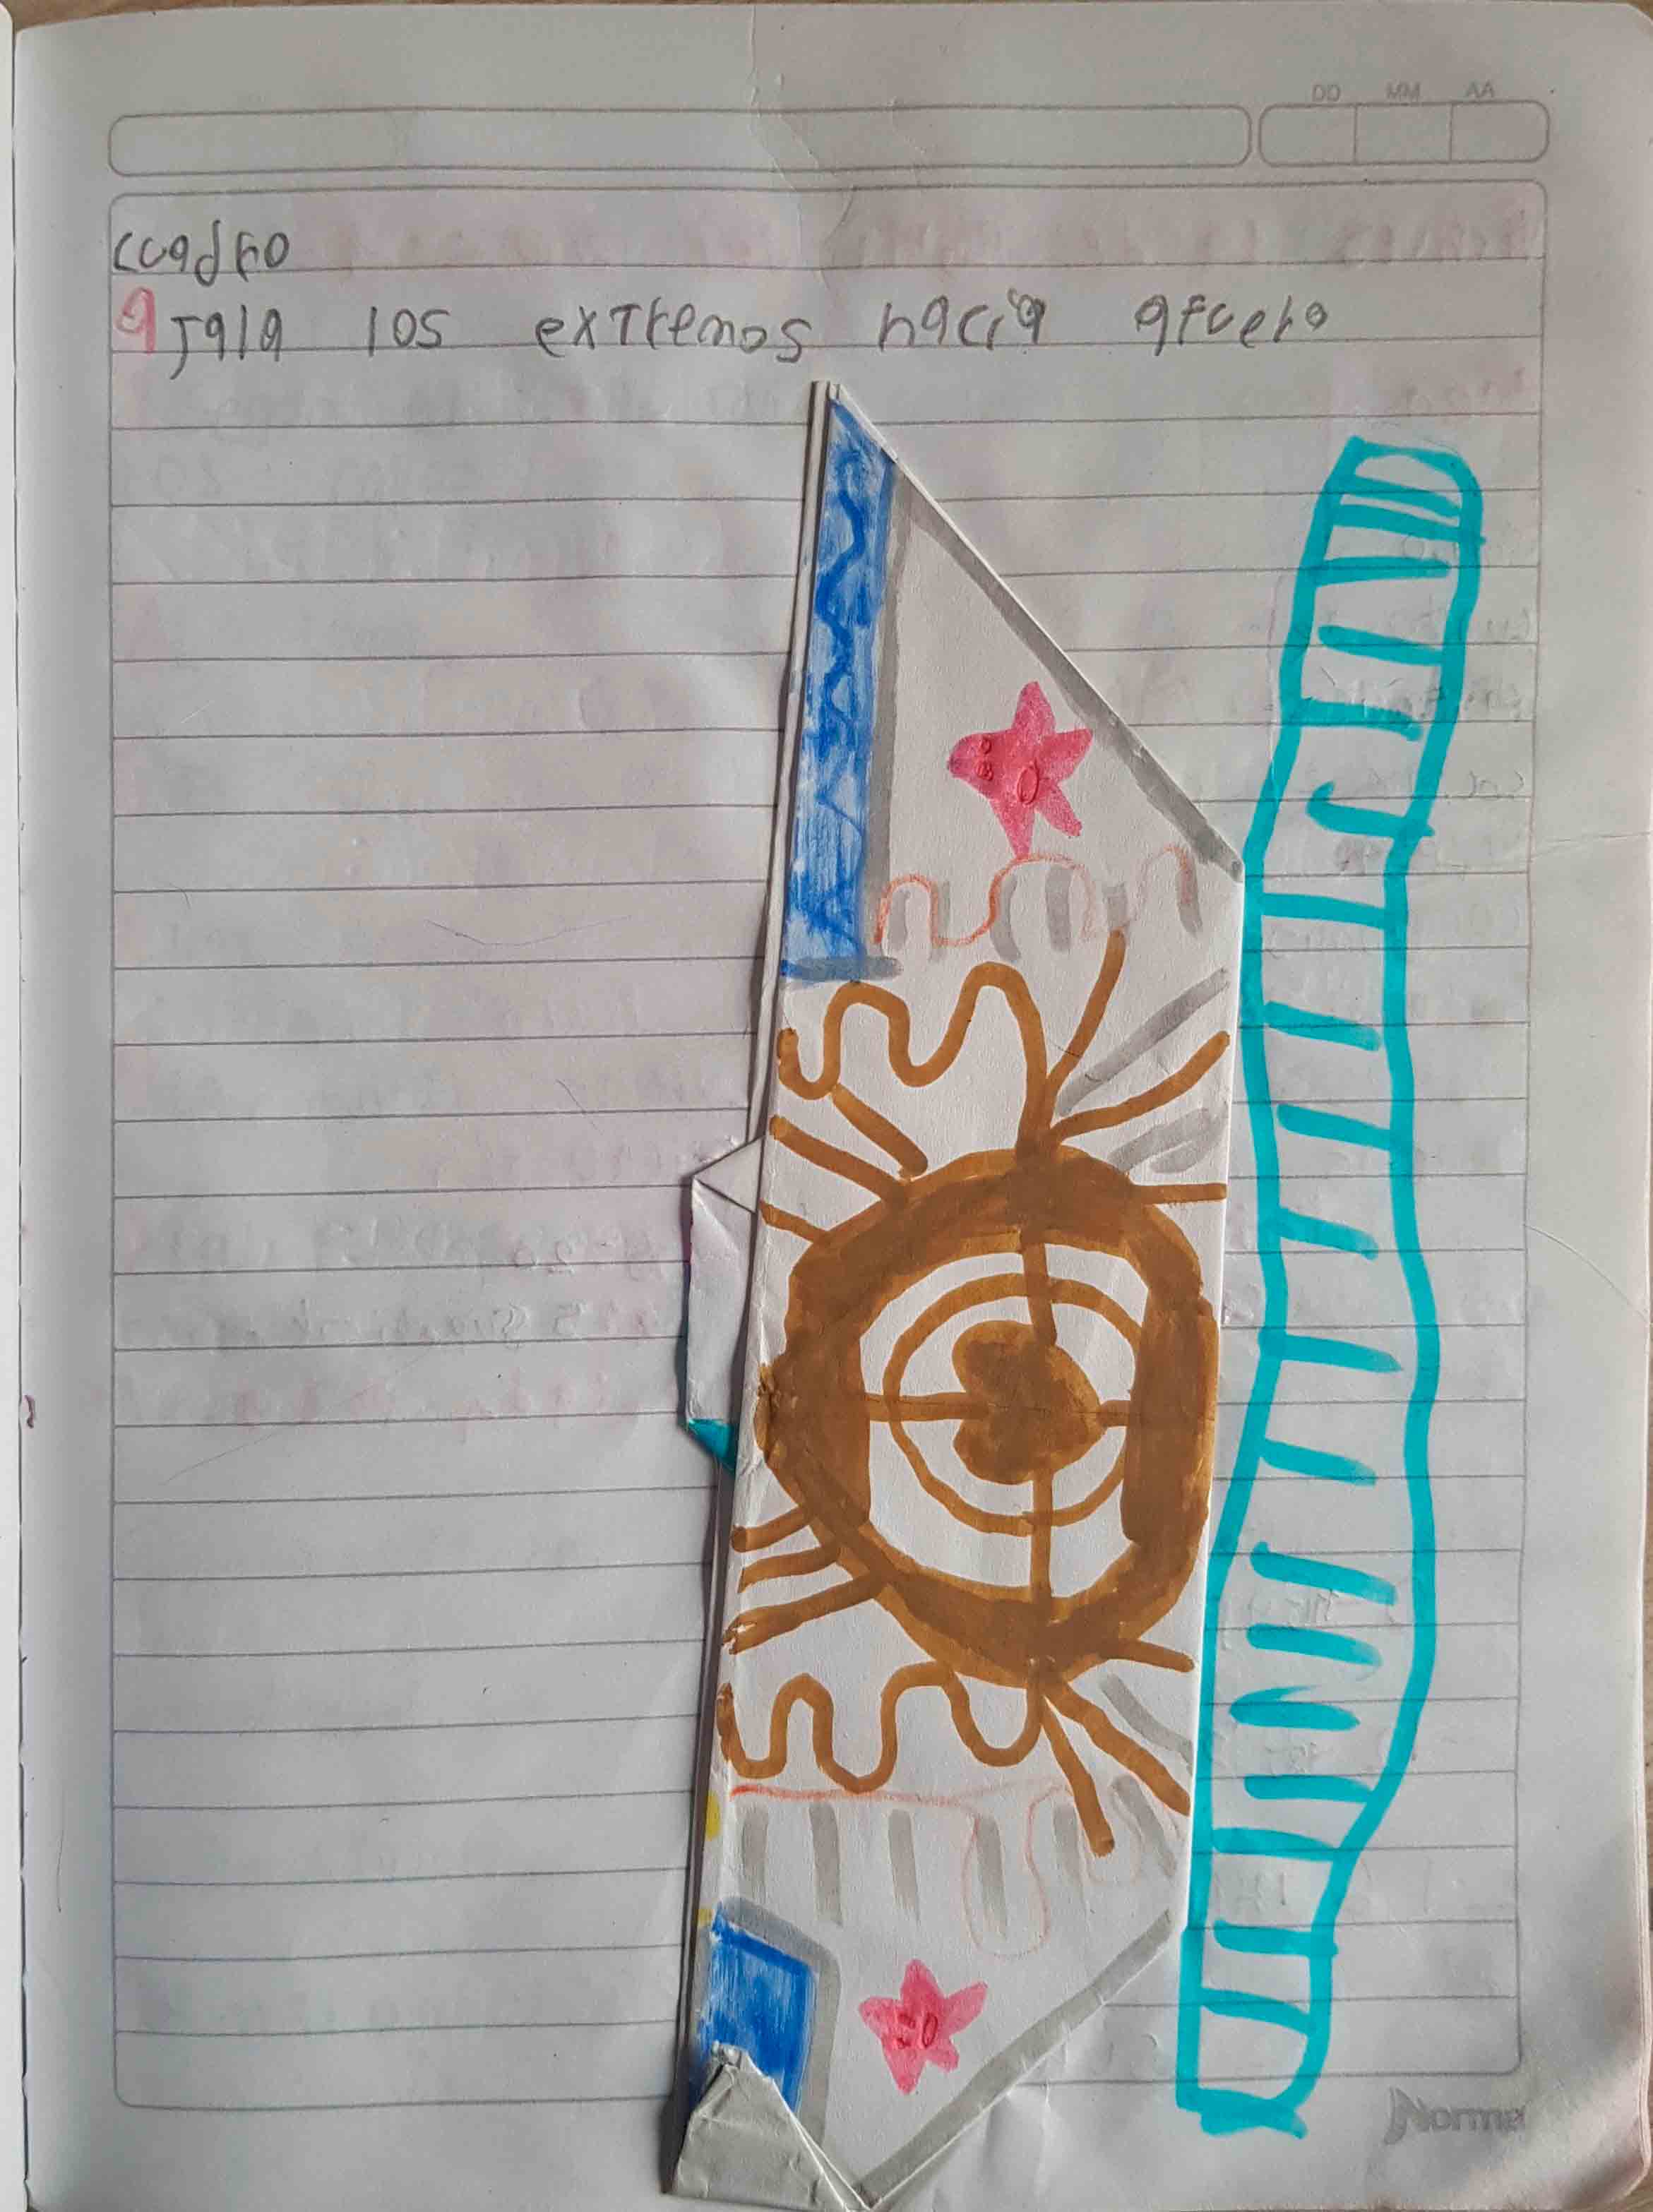 DD MM AA
cuadro
9 Jala los extremos hacia afuera
Norma